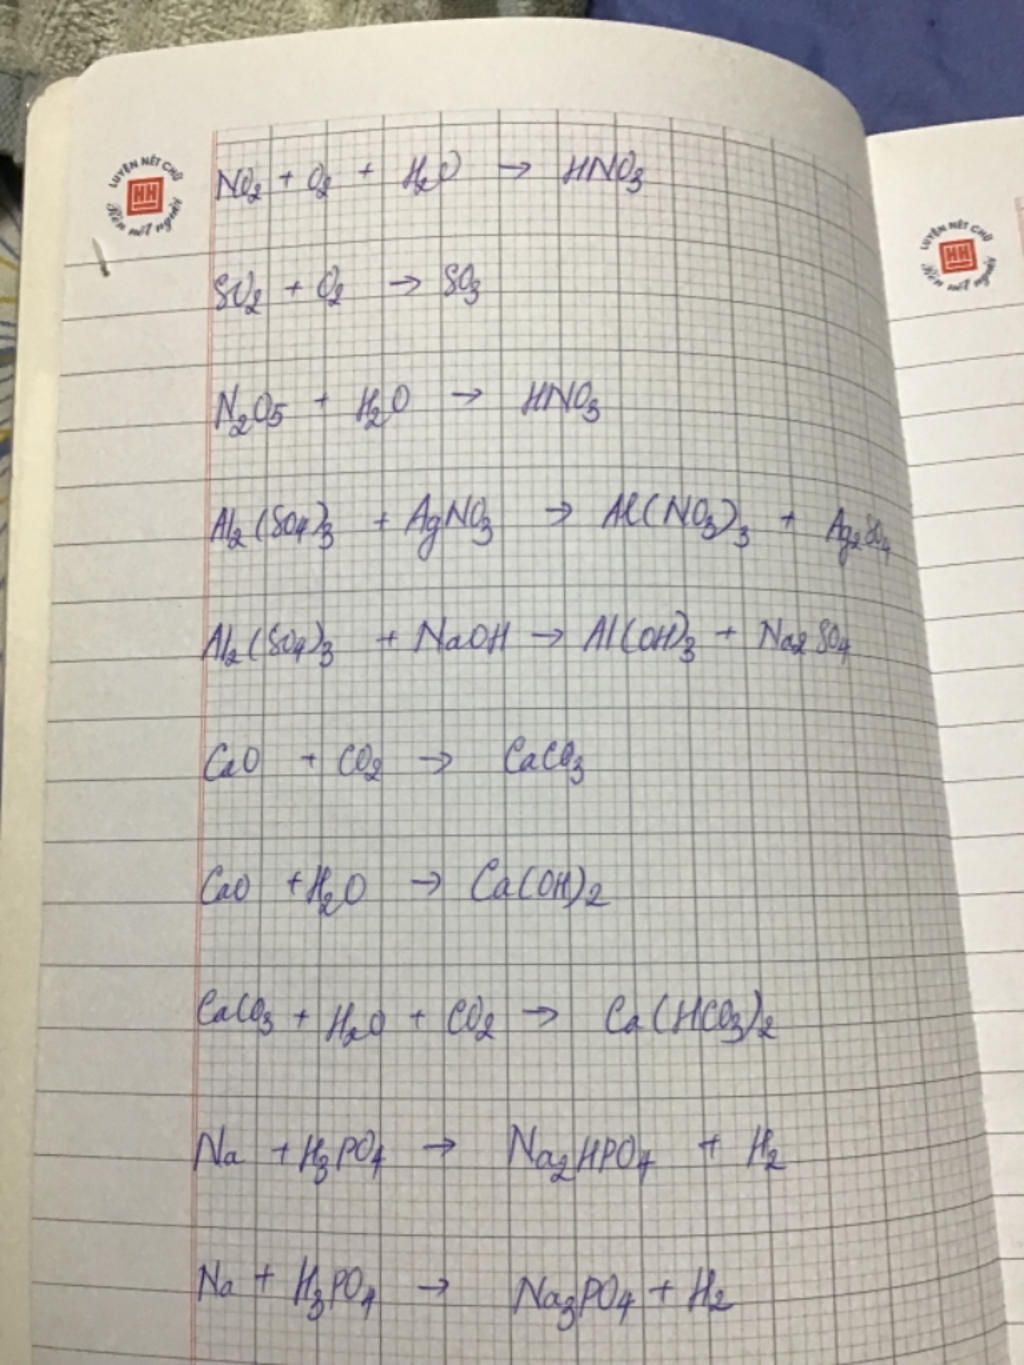 LUYỆN NÉT CHỮ
HH
Rèn nết người
NO2 + O2 + H2O → HNO3
SO2 + O2 → SO3
N2O5 + H2O → HNO3
Al2(SO4)3 + AgNO3 → Al(NO3)3 + Ag2SO4
Al2(SO4)3 + NaOH → Al(OH)3 + Na2SO4
CaO + CO2 → CaCO3
CaO + H2O → Ca(OH)2
CaCO3 + H2O + CO2 → Ca(HCO3)2
Na + H3PO4 → Na2HPO4 + H2
Na + H3PO4 → Na3PO4 + H2
LUYỆN NÉT CHỮ
HH
Rèn nết người